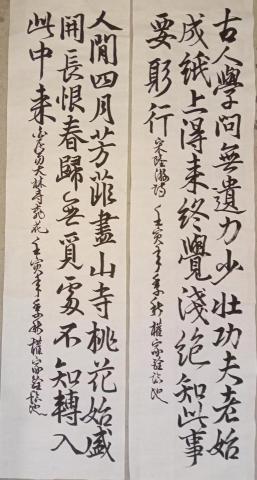 古人學問無遺力少壯功夫老始
成紙上得来終覺淺絕知此事
要躬行 宋陸游詩 壬寅年季秋 權 臨池
人間四月芳菲盡山寺桃花始盛
開長恨春歸無覓處不知轉入
此中来 白居易大林寺桃花 壬寅年季秋 權 臨池